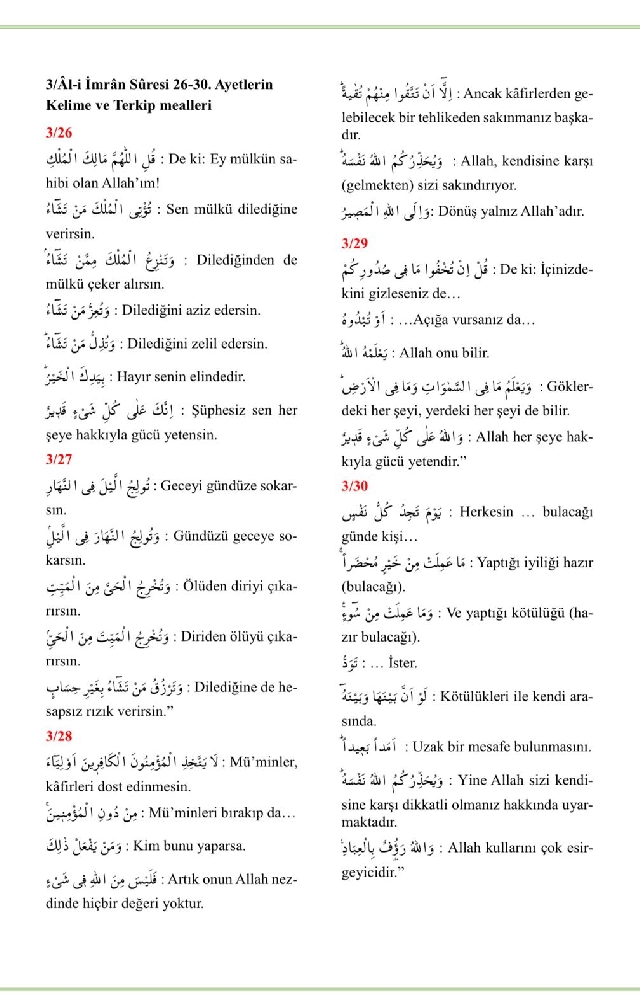 3/Âl-i İmrân Sûresi 26-30. Ayetlerin
Kelime ve Terkip mealleri
3/26
قُلِ اللّٰهُمَّ مَالِكَ الْمُلْكِ : De ki: Ey mülkün sa-
hibi olan Allah’ım!
تُؤْتِى الْمُلْكَ مَنْ تَشَٓاءُ : Sen mülkü dilediğine
verirsin.
وَتَنْزِعُ الْمُلْكَ مِمَّنْ تَشَٓاءُۘ : Dilediğinden de
mülkü çeker alırsın.
وَتُعِزُّ مَنْ تَشَٓاءُ : Dilediğini aziz edersin.
وَتُذِلُّ مَنْ تَشَٓاءُۜ : Dilediğini zelil edersin.
بِيَدِكَ الْخَيْرُۜ : Hayır senin elindedir.
اِنَّكَ عَلٰى كُلِّ شَىْءٍ قَدِيرٌ : Şüphesiz sen her
şeye hakkıyla gücü yetensin.
3/27
تُولِجُ الَّيْلَ فِى النَّهَارِ : Geceyi gündüze sokar-
sın.
وَتُولِجُ النَّهَارَ فِى الَّيْلِۘ : Gündüzü geceye so-
karsın.
وَتُخْرِجُ الْحَىَّ مِنَ الْمَيِّتِ : Ölüden diriyi çıka-
rırsın.
وَتُخْرِجُ الْمَيِّتَ مِنَ الْحَىِّۘ : Diriden ölüyü çıka-
rırsın.
وَتَرْزُقُ مَنْ تَشَٓاءُ بِغَيْرِ حِسَابٍ : Dilediğine de he-
sapsız rızık verirsin.”
3/28
لَا يَتَّخِذِ الْمُؤْمِنُونَ الْكَافِرِينَ اَوْلِيَٓاءَ : Mü’minler,
kâfirleri dost edinmesin.
مِنْ دُونِ الْمُؤْمِنِينَۚ : Mü’minleri bırakıp da…
وَمَنْ يَفْعَلْ ذٰلِكَ : Kim bunu yaparsa.
فَلَيْسَ مِنَ اللّٰهِ فِى شَىْءٍ : Artık onun Allah nez-
dinde hiçbir değeri yoktur.
اِلَّٓا اَنْ تَتَّقُوا مِنْهُمْ تُقٰيةًۜ : Ancak kâfirlerden ge-
lebilecek bir tehlikeden sakınmanız başka-
dır.
وَيُحَذِّرُكُمُ اللّٰهُ نَفْسَهُۜ : Allah, kendisine karşı
(gelmekten) sizi sakındırıyor.
وَاِلَى اللّٰهِ الْمَصِيرُ: Dönüş yalnız Allah’adır.
3/29
قُلْ اِنْ تُخْفُوا مَا فِى صُدُورِكُمْ : De ki: İçinizde-
kini gizleseniz de…
اَوْ تُبْدُوهُ : …Açığa vursanız da…
يَعْلَمْهُ اللّٰهُۜ : Allah onu bilir.
وَيَعْلَمُ مَا فِى السَّمٰوَاتِ وَمَا فِى الْاَرْضِۜ : Gökler-
deki her şeyi, yerdeki her şeyi de bilir.
وَاللّٰهُ عَلٰى كُلِّ شَىْءٍ قَدِيرٌ : Allah her şeye hak-
kıyla gücü yetendir.”
3/30
يَوْمَ تَجِدُ كُلُّ نَفْسٍ : Herkesin … bulacağı
günde kişi…
مَا عَمِلَتْ مِنْ خَيْرٍ مُحْضَراًۚ : Yaptığı iyiliği hazır
(bulacağı).
وَمَا عَمِلَتْ مِنْ سُٓوءٍۚ : Ve yaptığı kötülüğü (ha-
zır bulacağı).
تَوَدُّ : … İster.
لَوْ اَنَّ بَيْنَهَا وَبَيْنَهُٓ : Kötülükleri ile kendi ara-
sında.
اَمَداً بَعِيداًۜ : Uzak bir mesafe bulunmasını.
وَيُحَذِّرُكُمُ اللّٰهُ نَفْسَهُۜ : Yine Allah sizi kendi-
sine karşı dikkatli olmanız hakkında uyar-
maktadır.
وَاللّٰهُ رَؤُفٌ بِالْعِبَادِ : Allah kullarını çok esir-
geyicidir.”